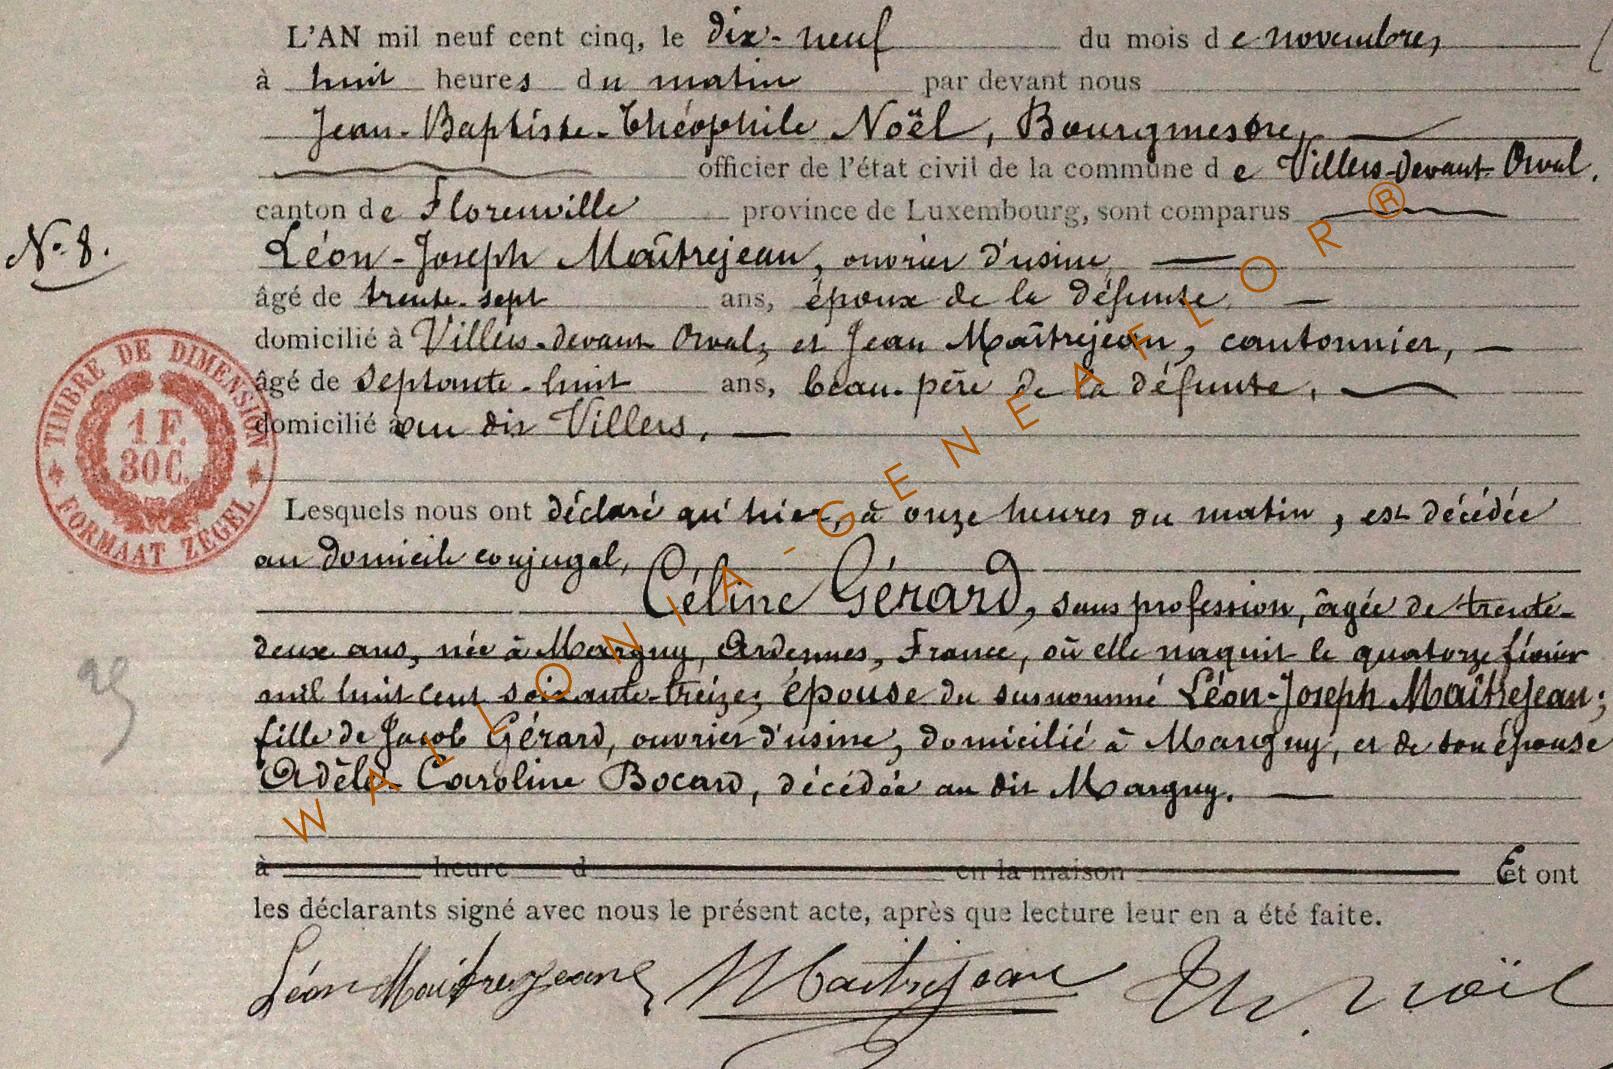 L'AN mil neuf cent cinq, le dix-neuf du mois de novembre,
à huit heures du matin par devant nous
Jean-Baptiste-Théophile Noël, Bourgmestre,
officier de l'état civil de la commune de Villers-devant-Orval.
canton de Florenville province de Luxembourg, sont comparus
N° 8.
Léon-Joseph Maîtrejean, ouvrier d'usine
âgé de trente-sept ans, époux de la défunte
domicilié à Villers-devant Orval, et Jean Maîtrejean, cantonnier,
âgé de septante-huit ans, beau-père de la défunte,
domicilié au dit Villers.
TIMBRE DE DIMENSION
1 F.
30 C.
FORMAAT ZEGEL
Lesquels nous ont déclaré qu'hier, à onze heures du matin, est décédée
au domicile conjugal,
Céline Gérard, sans profession, âgée de trente-
deux ans, née à Margny, Ardennes, France, où elle naquit le quatorze février
mil huit cent soixante-treize; épouse du susnommé Léon-Joseph Maîtrejean;
fille de Jacob Gérard, ouvrier d'usine, domicilié à Margny, et de son épouse
Adèle Caroline Bocard, décédée au dit Margny.
à heure d en la maison Et ont
les déclarants signé avec nous le présent acte, après que lecture leur en a été faite.
Léon Maitrejean Maitrejean Th. Noël
WALLONIA-GENEAFLOR®